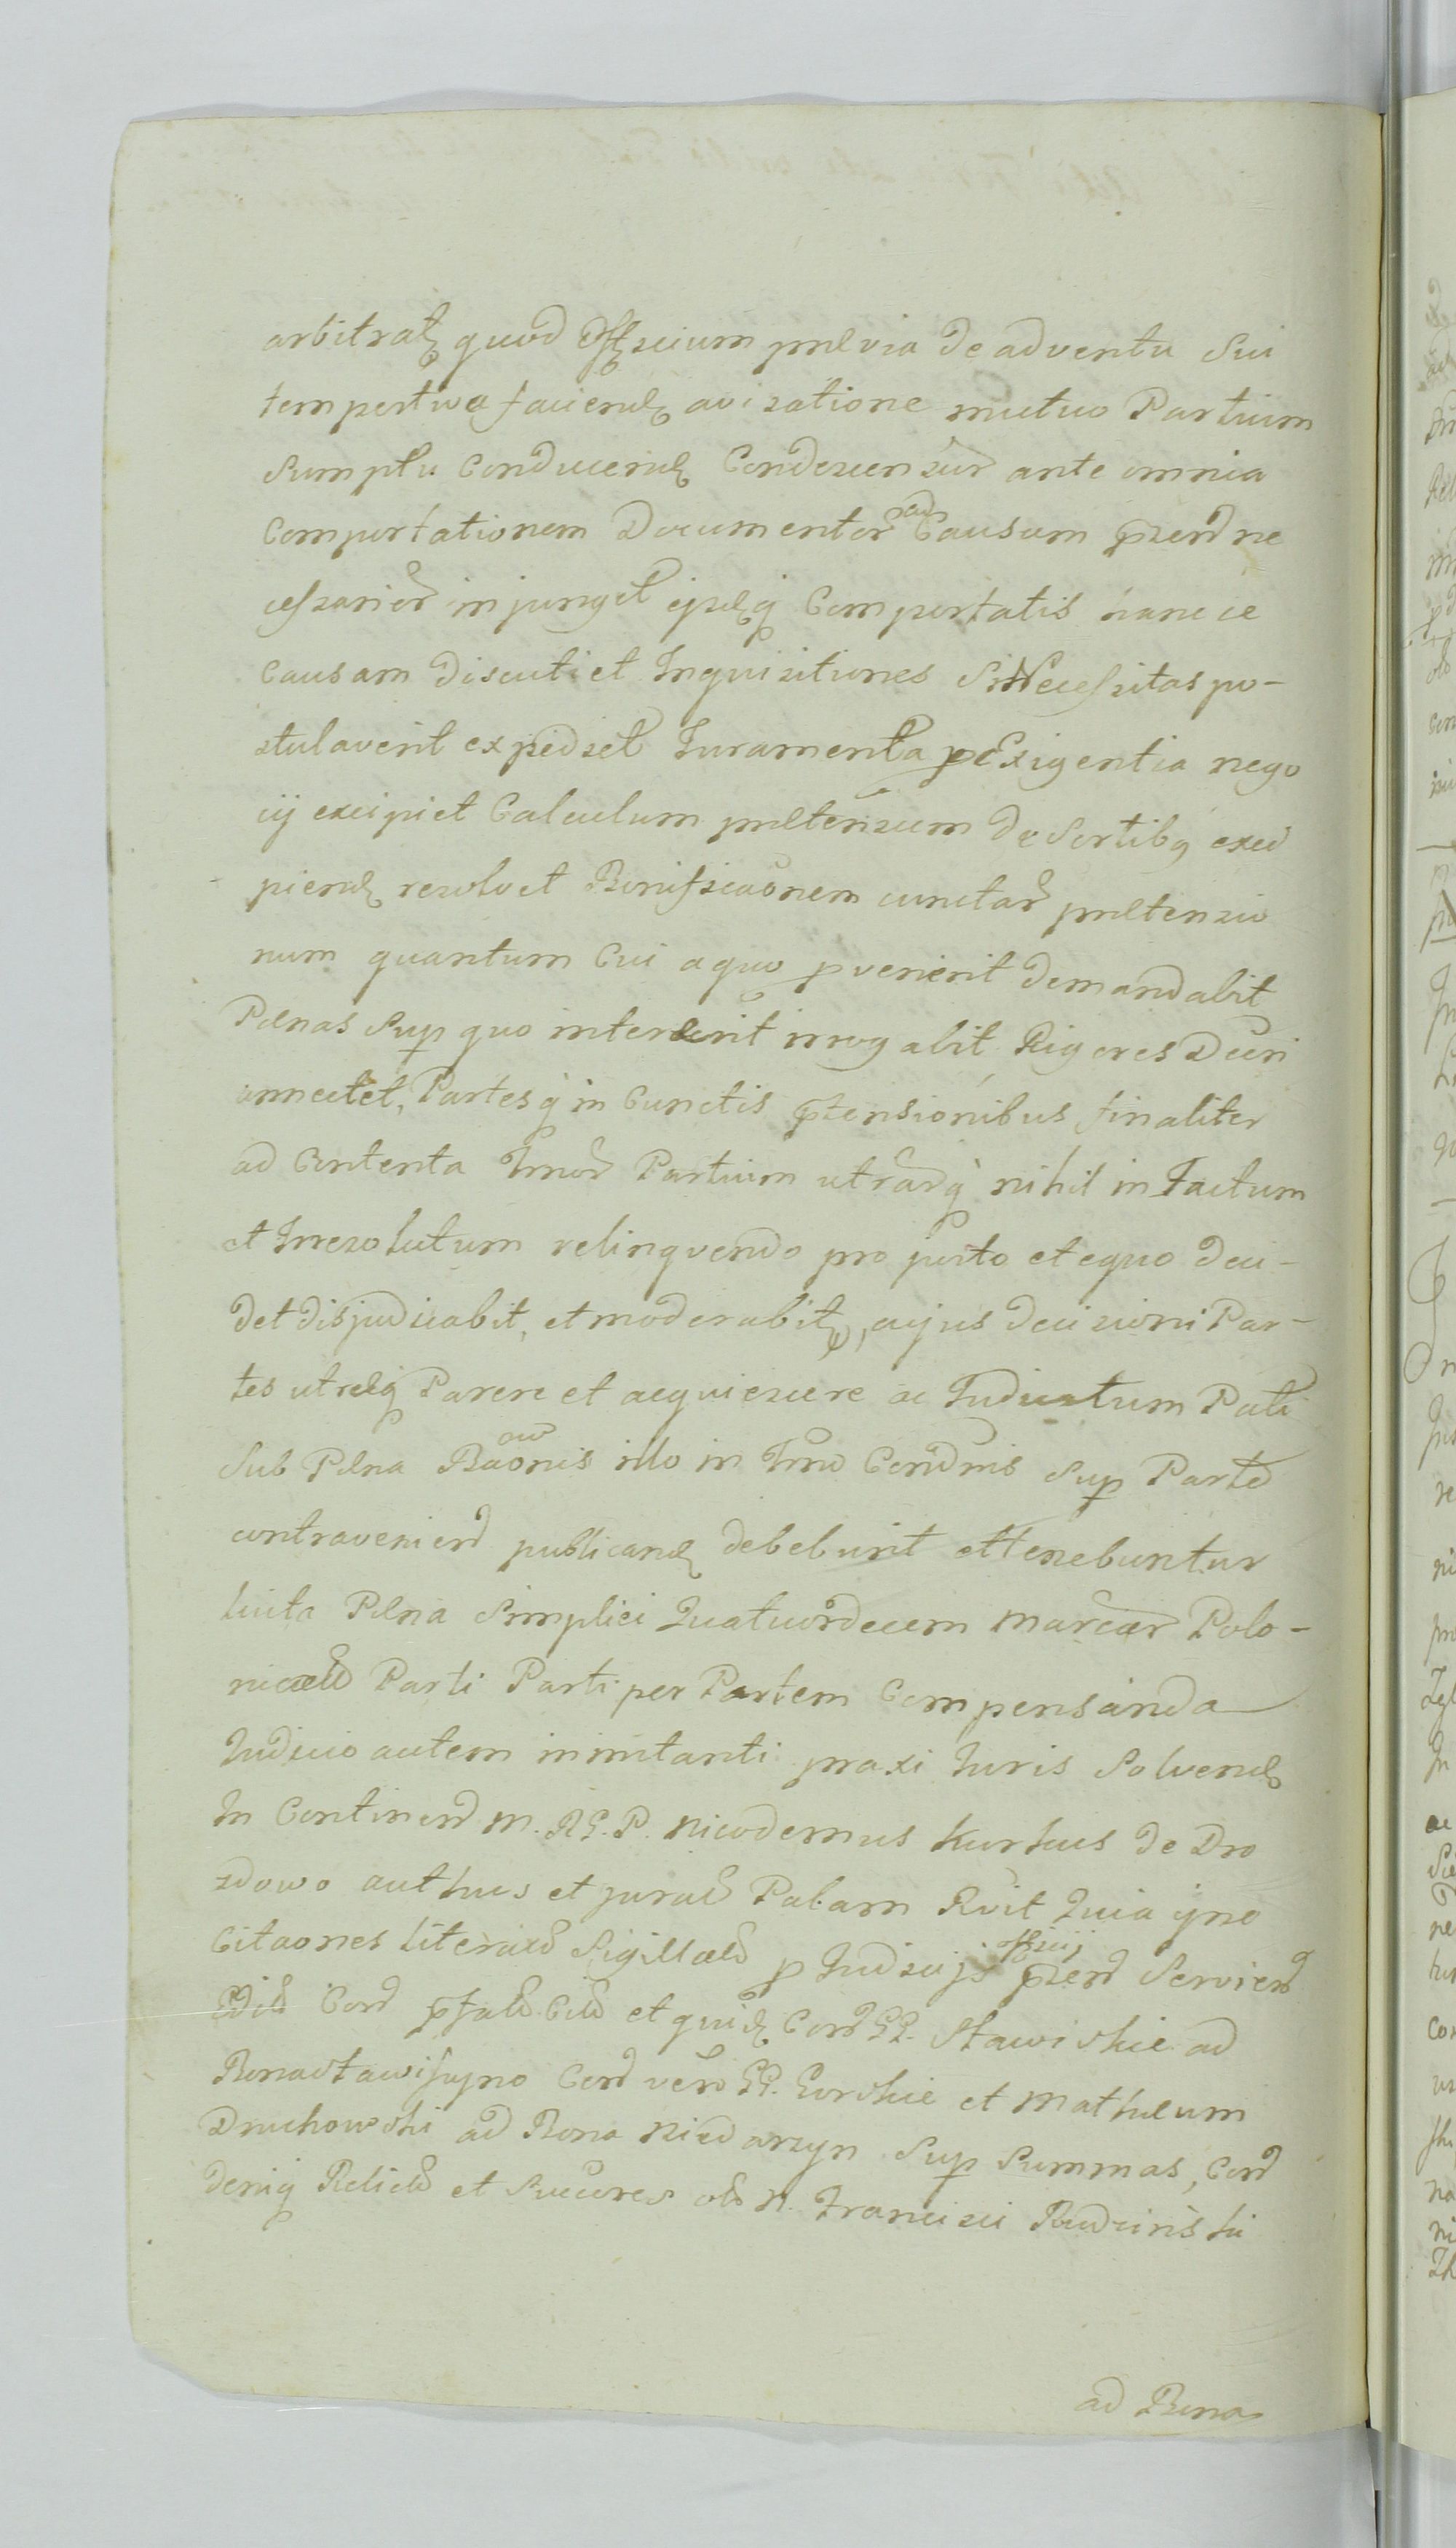 arbitratę quod Officium prævia de adventu Sui
tempestive faciend avisatione mutuo Partium
Sumptu Conducend Condescensur ante omnia
Comportationem Documentor ad Causam præsend ne
cessarior injunget ijsdq Comportatis hanc ce
Causam Discutiet Inquisitiones Si Necessitas po-
stulaverit expediet Juramenta p Exigentia nego
cij excipiet Calculum prætensum de Sortibq exci
piend resolvet Bonificaonem cunctar prætensio
num quantum Cui a quo pvenerit demandabit
Pænas Sup quo intererit irrogabit Rigores Decri
annectet, Partesq in Cunctis prætensionibus finaliter
ad Contenta Tmor Partium utrarq nihil in Factum
et Irresolutum relinqvendo pro justo et equo deci-
det disjudicabit, et moderabit, cujus decisioni Par-
tes utræq Parere et acquiescere ac Judicatum Pati
Sub Pæna Baonis illo in Tmo Condnis Sup Parte
contravenien publicand debebunt et tenebuntur
luita Pæna Simplici Quatuordecem Marcar Polo-
nical Parti Parti per Partem Compensanda
Judicio autem inimitanti praxi Juris Solvend
In Continend M. R. G. P. Nicodemus Kurkus de Dro
zdowo authus et jurat Palam Rvit Quia ipse
Citaones literales Sigillat p Judicij Officij præsend Serviend
Edit Cord præfat Cit et quid Cord GG. Stawiskie ad
Bona Stawisszyno Cord vero GG. Gorskie et Mathæum
Druchowski ad Bona Niedarzyn Sup Summas, Cord
deniq Relict et Succres olo N. Francisci Rudzinski
ad Bona